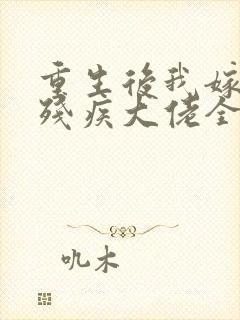 重生後我嫁
殘疾大佬全
吼木